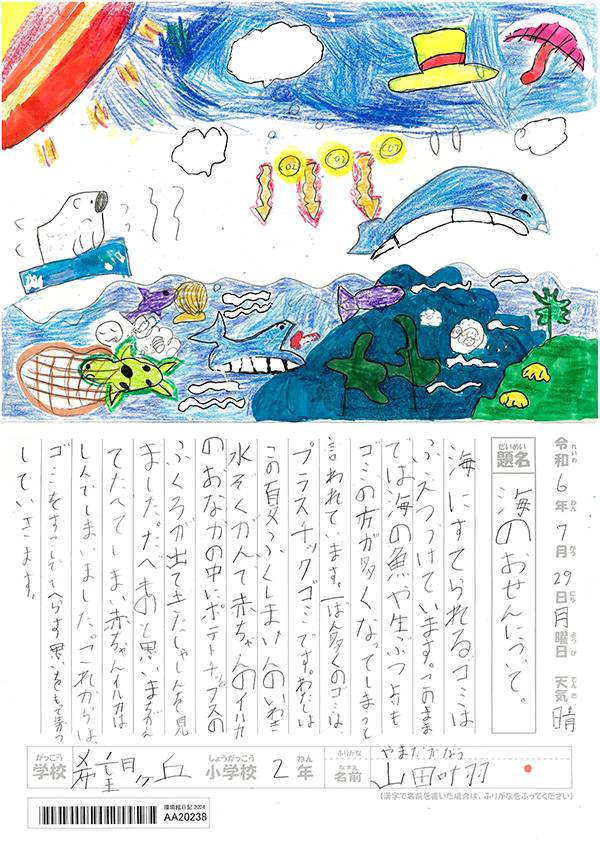 CO2
CO2
CO2
令和6年7月29日月曜日 天気 晴
れいわ ねん がつ にち ようび てんき
だいめい
題名 海のおせんについて。
海にすてられるゴミは
ふえつづけています。このまま
では海の魚や生ぶつよりも
ゴミの方が多くなってしまうと
言われています。一ばん多くのゴミは
プラスチックゴミです。わたしは
この夏ふくしまけんのいわき
水そくかんで赤ちゃんのイルカ
のおなかの中にポテトチップスの
ふくろが出てきたしゃしんを見
ました。たべものと思いまちがえ
てたべてしまい赤ちゃんイルカは
しんでしまいました。これからは、
ゴミをすこしでもへらす思いをもって
していきます。
がっこう しょうがっこう ねん
学校 希望ヶ丘 小学校 2年
ふりがな やまだかなう
なまえ
名前 山田叶羽
(漢字で名前を書いた場合は、ふりがなをふってください)
環境絵日記 2024
AA20238